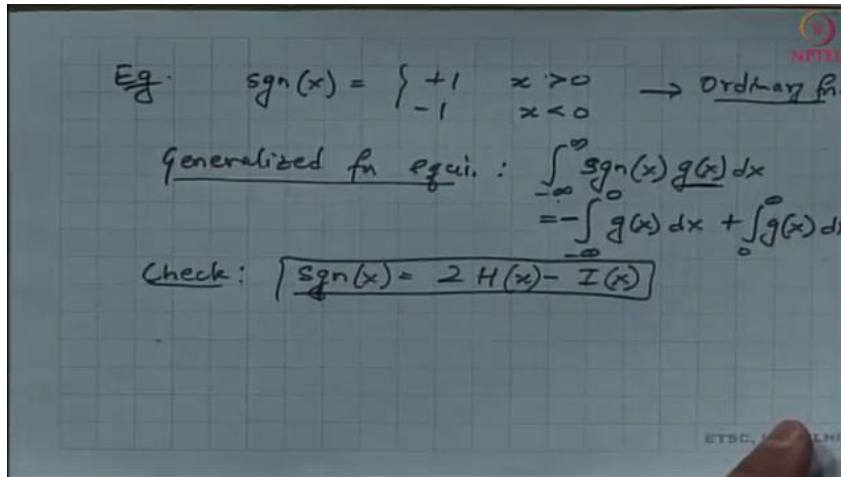 NPTEL
Eg. sgn(x) = { +1 x > 0 → Ordinary fn.
-1 x < 0
Generalized fn equi. : ∫_{-∞}^{∞} sgn(x) g(x) dx
= - ∫_{-∞}^{0} g(x) dx + ∫_{0}^{∞} g(x) dx
Check : sgn(x) = 2 H(x) - I(x)
ETSC,